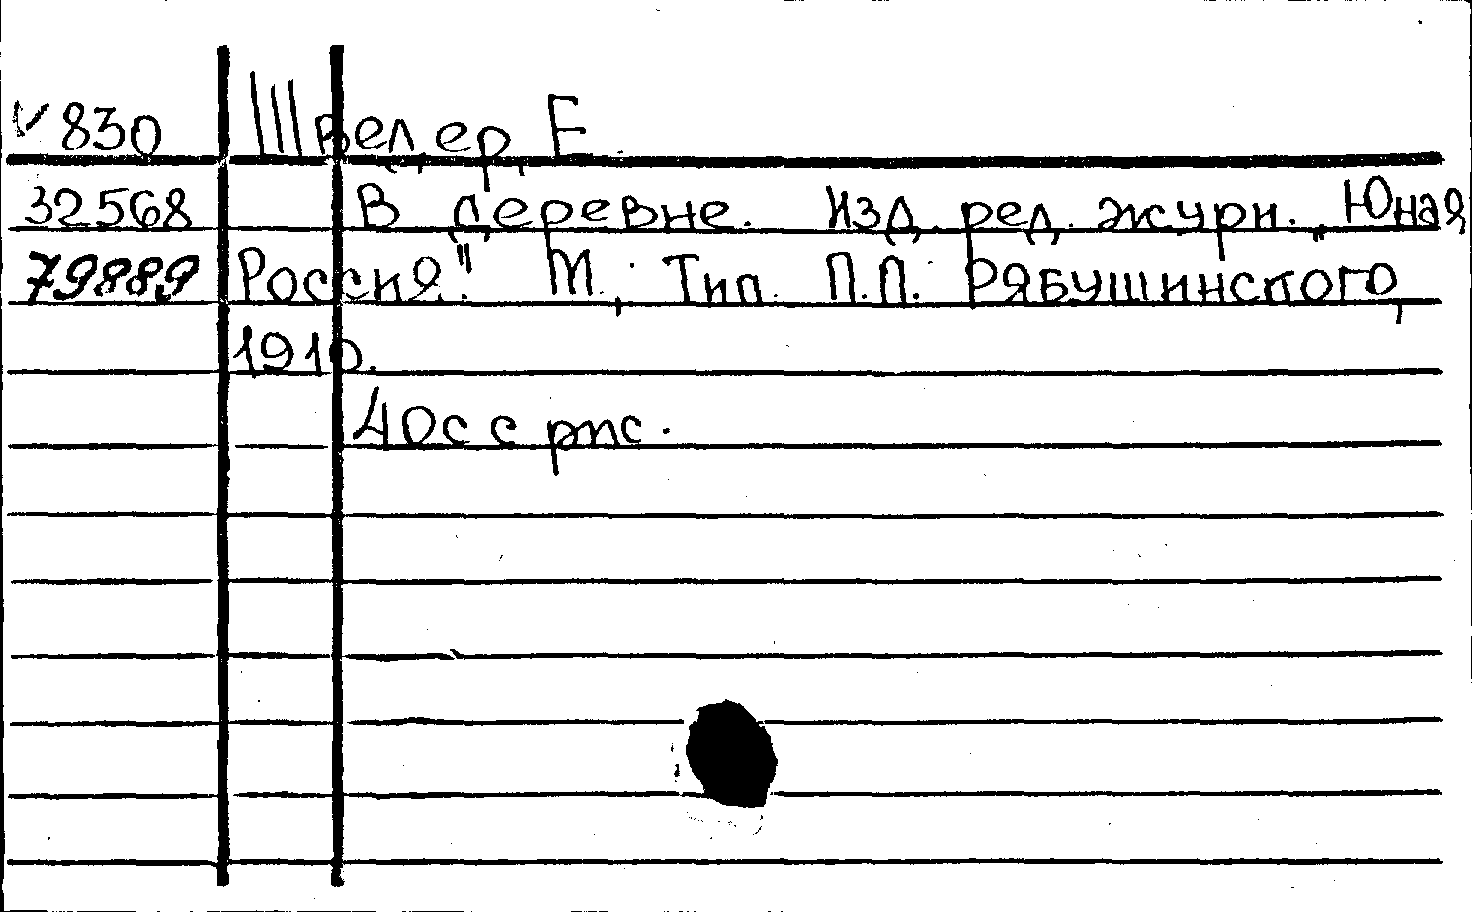 √ 830 Шведер, Е.
32568 В деревне. Изд. ред. журн. „Юная
79889 Россия". М., Тип. П.П. Рябушинского,
1910.
40с с рис.